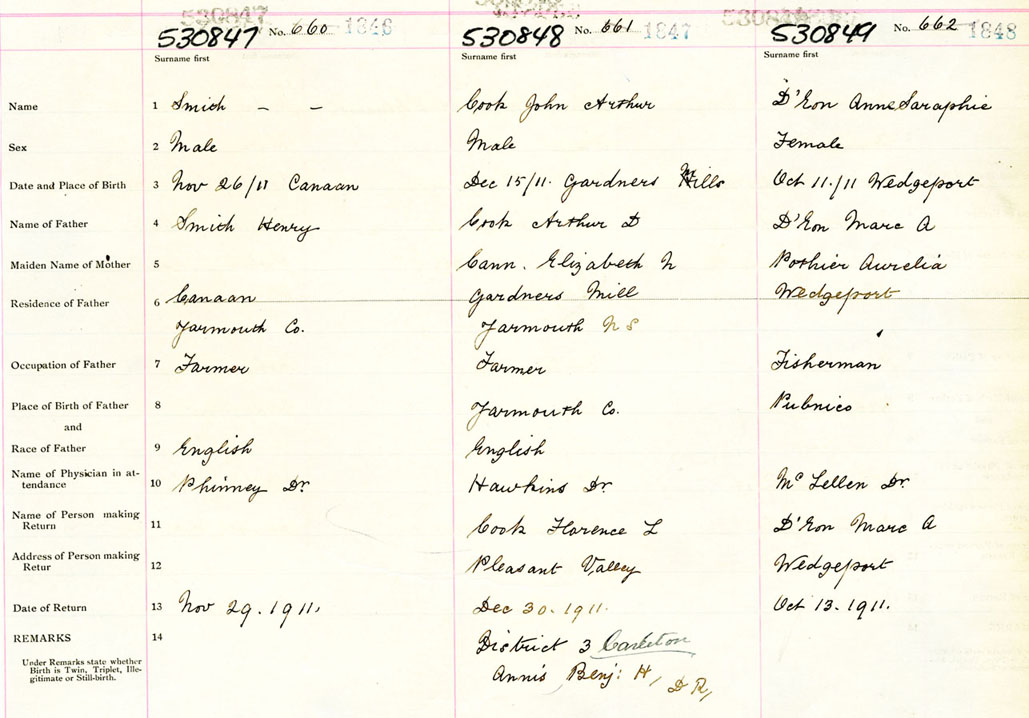 530847 No. 660 1846
530848 No. 661 1847
530849 No. 662 1848
Surname first
Surname first
Surname first
Name 1 Smith – – Cook John Arthur D'Eon Anne Saraphie
Sex 2 Male Male Female
Date and Place of Birth 3 Nov 26/11 Canaan Dec 15/11. Gardners Mills Oct 11./11 Wedgeport
Name of Father 4 Smith Henry Cook Arthur D D'Eon Marc A
Maiden Name of Mother 5 Cann. Elizabeth N Pothier Aurelia
Residence of Father 6 Canaan Gardners Mill Wedgeport
Yarmouth Co. Yarmouth N S
Occupation of Father 7 Farmer Farmer Fisherman
Place of Birth of Father 8 Yarmouth Co. Pubnico
and
Race of Father 9 English English
Name of Physician in at-
tendance 10 Phinney Dr. Hawkins Dr. Mc Lellen Dr.
Name of Person making
Return 11 Cook Florence L D'Eon Marc A
Address of Person making
Retur 12 Pleasant Valley Wedgeport
Date of Return 13 Nov 29. 1911. Dec 30. 1911. Oct 13. 1911.
REMARKS 14 District 3 Carleton
Under Remarks state whether
Birth is Twin, Triplet, Ille-
gitimate or Still-birth.
Annis Benj: H, D R,